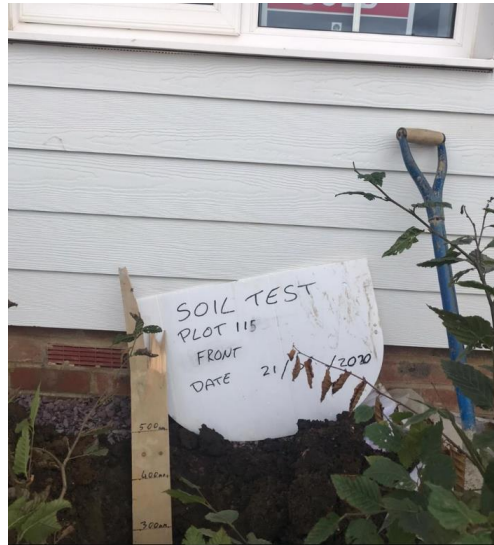 SOIL TEST
PLOT 115
FRONT
DATE 21/ /2020
500mm
400mm
300mm